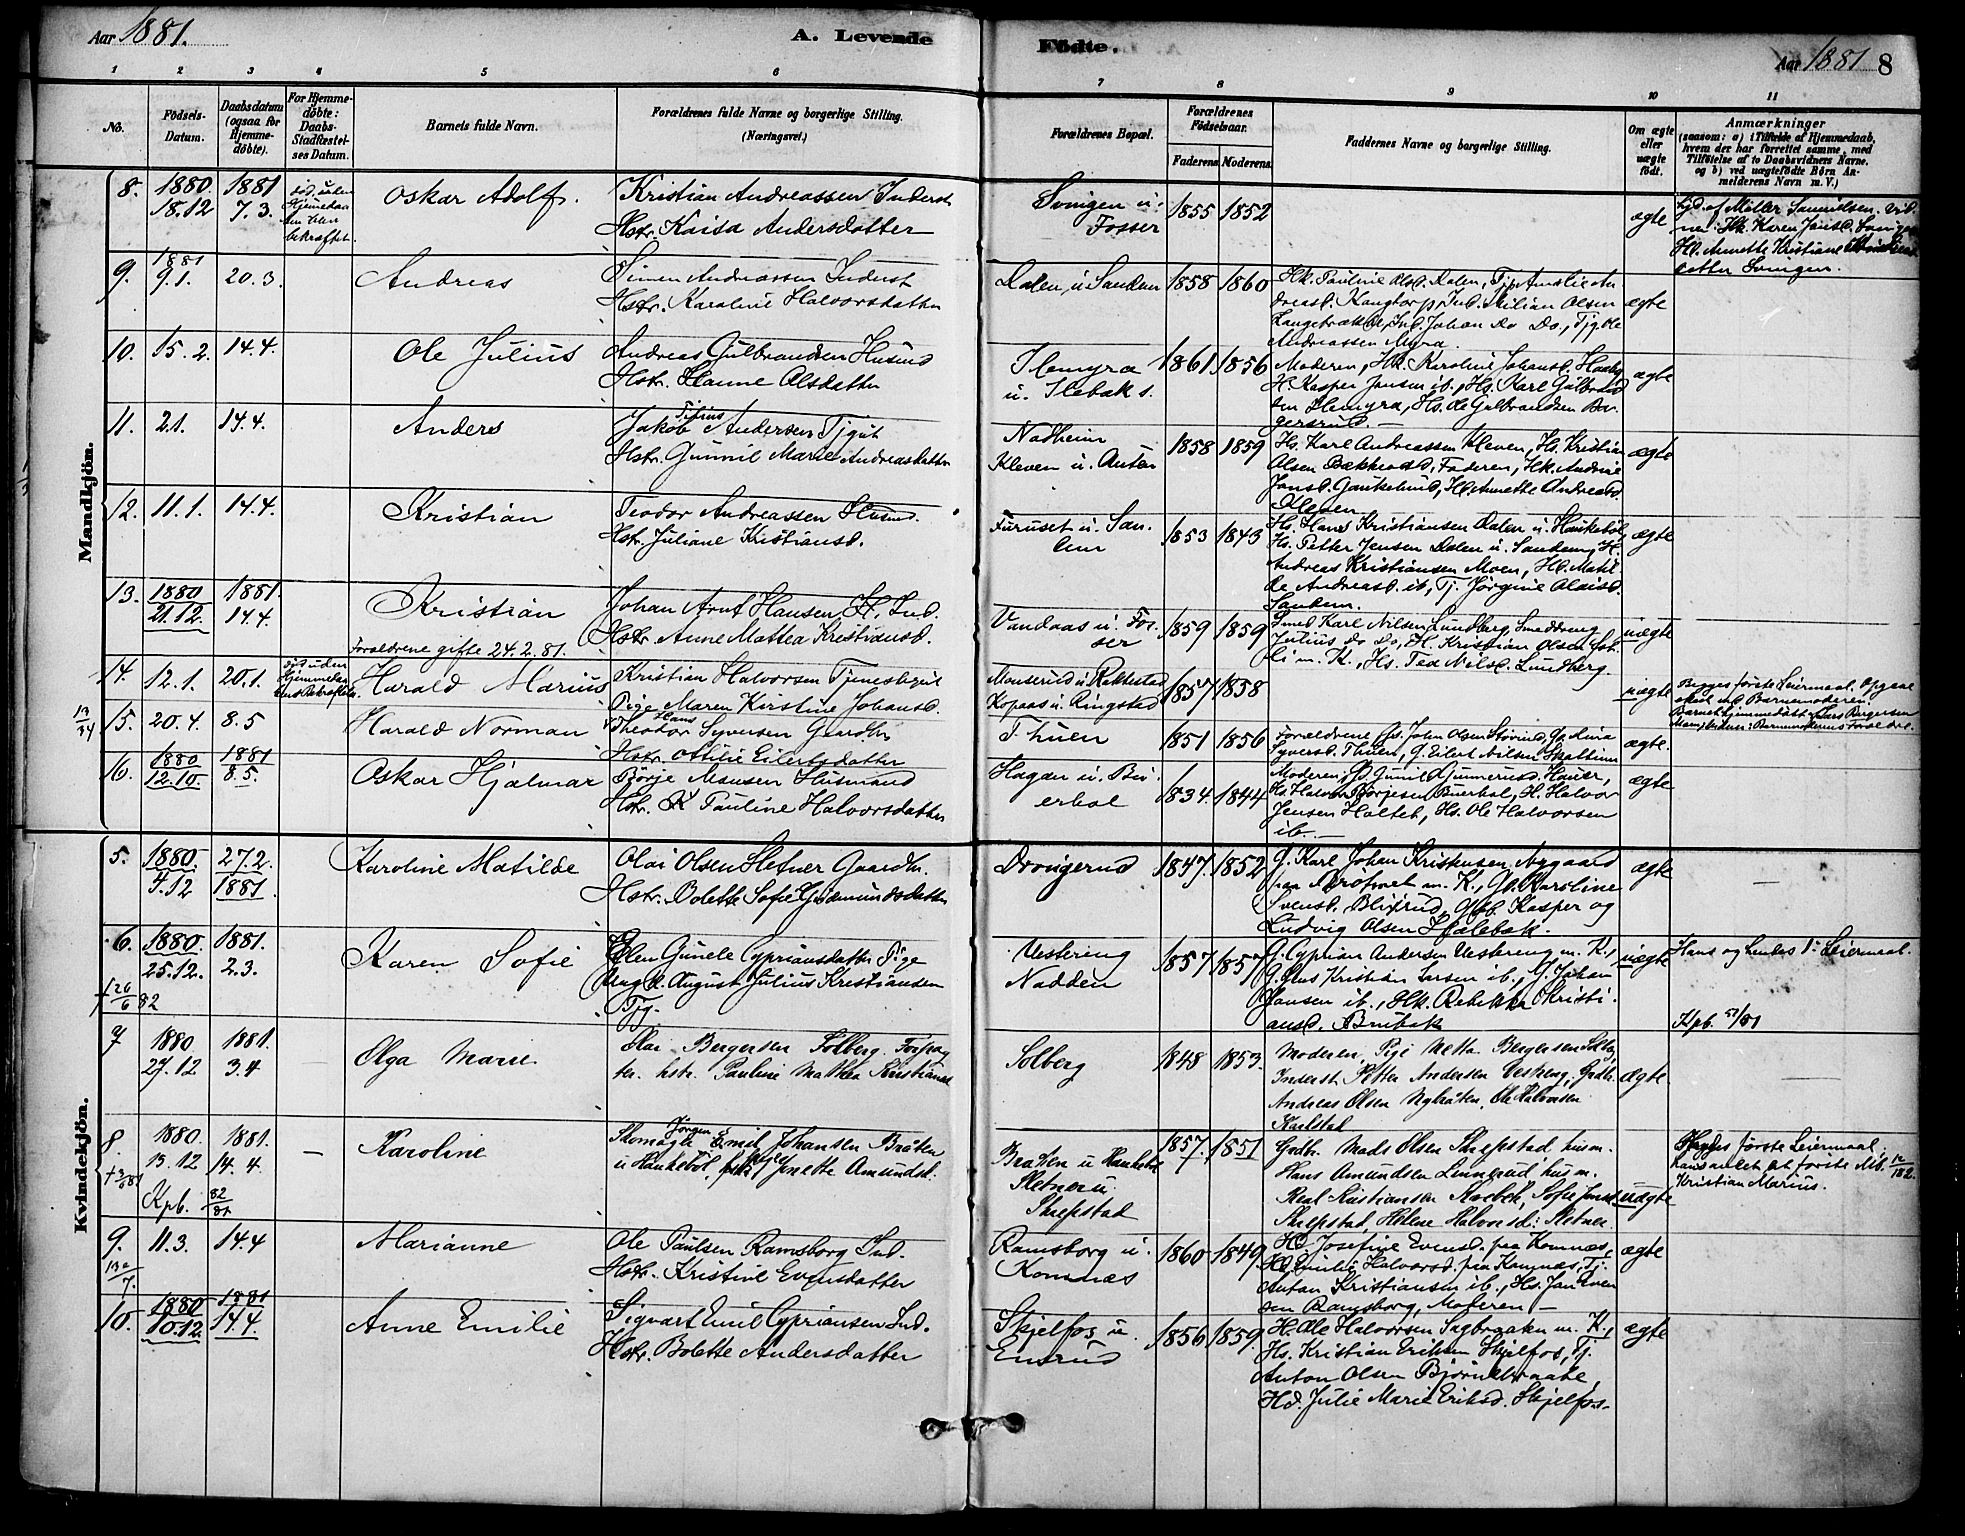 Aar 1881.
A. Levende
Födte.
Aar 1881
8
1 2 3 4 5 6 7 8 9 10 11
No.
Födsels-
Datum.
Daabsdatum
(ogsaa for
Hjemme-
döbte).
For Hjemme-
döbte:
Daabs-
Stadfæstel-
ses Datum.
Barnets fulde Navn.
Forældrenes fulde Navne og borgerlige Stilling.
(Næringsvei.)
Forældrenes Bopæl.
Forældrenes
Födselsaar.
Faderens. Moderens.
Faddernes Navne og borgerlige Stilling.
Om ægte
eller
uægte
födt.
Anmærkninger
(saasom: a) i Tilfælde af Hjemmedaab,
hvem der har forrettet samme, med
Tilföielse af to Daabsvidners Navne,
og b) ved uægtefödte Börn An-
melderens Navn m. V.)
Mandkjön.
8. 1880. 18.12
1881 7.3.
død uden
Hjemmedaa
ben blev
bekræftet.
Oskar Adolf.
Kristian Andreassen Inderst
Hstr. Kaisa Andersdatter
Svingen u.
Fosser
1855 1852
ægte
9. 1881 9.1. 20.3.
Andreas
Simen Andreassen Inderst
Hstr. Karoline Halvorsdatter
Dalen u. Sanden
1858 1860
Hk. Pauline Olsd. Dalen, Tjp. Amalie An
dreasd. Kangtorp, Ind. Milian Olsen
Langebrække, Ind. Johan Do Do, Tjg. Ole
Andreassen Myra.
ægte
10. 15.2. 14.4.
Ole Julius
Andreas Gulbrandsen Husmd
Hstr. Hanne Olsdatter
Ilemyra
u. Ilebæk s.
1861 1856
Moderen, Hk. Karoline Johansd. Haaby
H. Kasper Jensen ib., Hs. Karl Gulbrand
sen Ilemyra, Hs. Ole Gulbrandsen Bor
gersrud
ægte
11. 2.1. 14.4.
Anders
Jakob Titius Andersen Tjgut
Hstr. Gunnil Marie Andreasdatter
Nadheim
Kleven u. Anten
1858 1859
Hs. Karl Andreassen Kleven, Hs. Kristian
Olsen Bækkevold, Faderen, Hk. Andrine
Jansd. Gaukelund, Hd. Annette Andreasd.
Kleven
ægte
12. 11.1. 14.4.
Kristian
Teodor Andreassen Husmd.
Hstr. Juliane Kristiansd.
Furuset u. San-
dem
1853 1843
Hs. Hans Kristiansen Dalen u. Haukebøl,
Hs. Petter Jensen Dalen u. Sandem, H.
Andreas Kristiansen Moen, Hd. Matil
de Andreasd. ib, Tj. Jørgine Olaisd.
Sandem.
ægte
13. 1880 21.12.
1881. 14.4.
Kristian
Forældrene gifte 24.2.81.
Johan Arnt Hansen H. Ind.
Hstr. Anne Mattea Kristiansd.
Vandaas u. Fos-
ser
1859 1859
Smed Karl Nilsen Lundberg, Smeddreng
Julius Do Do, H. Kristian Olsen
li m. K., Hs. Tea Nilsd. Lundberg.
uægte
14. 12.1. 20.1.
død uden
Hjemmedaa
bens Bekræftelse
Harald Marius
Kristian Halvorsen Tjenestegut
Pige Maren Kirstine Johansd.
Monserud u. Rakkestad
Kopaas u. Ringstad
1857 1858
uægte
Begges første Leiermaal. Opgave
sked ved Barnemoderen.
Barnet hjemmedøbt af Lars Børgersen
15. 20.4. 8.5
Harald Norman
Theodor Hans Syversen Gaardbr.
Hstr. Ottilie Eilertsdatter
Thuen
1851 1856
Forældrene
Syversd. Thuen, G. Eilert Nilsen Skattum
ægte.
16. 1880 12.10.
1881 8.5.
Oskar Hjalmar
Børje Monsen Husmand
Hstr. K Pauline Halvorsdatter
Hagan u. Bu
erbøl
1834. 1844
Moderen, Gunil Gunnerusd. Haier,
Hs. Halvor Børjesen Buerbøl, H. Halvor
Jensen Holtet, Hs. Ole Halvorsen
ib. —
ægte
Kvindekjön.
5. 1880. 4.12
27.2. 1881.
Karoline Matilde
Olai Olsen Sletner Gaardbr.
Hstr. Bolette Sofie Gudmundsdatter
Drongerud
1847. 1852
G. Karl Johan Kristensen Nygaard
m. K., Gd. Karoline
Svensd. Blixrud, Kasper og
Ludvig Olsen Ilebæk.
ægte
—
6. 1880. 25.12.
1881. 2.3.
† 26/6 82
Karen Sofie
Elen Gunele Cypriansdatter Pige
Ungk. August Julius Kristiansen
Tjg.
Vestereng
Nadden
1857 1857
G. Cyprian Andersen Vestereng m. K.,
G. Kristian Larsen ib., G. Johan
Hansen ib., Hk. Rebekka Kristi-
ansd. Brubæk
uægte
Hans og hendes 1ste Leiermaal.
Kpb. 51/81
7 1880 27.12
1881. 3.4
—
Olga Marie
Olai Bergersen Solberg. Forpag
ter. hstr. Pauline Mathea Kristiansd
Solberg
1848 1853.
Moderen, Pige Netta Bergersen Solbg,
Inderst Petter Andersen Vestreng, Grdbr.
Andreas Olsen Nybråten, Ole Halvorsen
Karlstad
ægte
8. 1880. 13.12
1881. 14.4.
Kpb. 82/81
—
Karoline
Skomager Jørgen Emil Johansen Bråten
u Haukebøl, Pige Janette Amundsd.
Braten u Haukebøl
Sletner u.
Skrepstad
1857. 1851
Grdbr. Mads Olsen Skrepstad, husm.
Hans Amundsen Lennerud, husm.
Karl Kristiansen Sofie Jensd
Skrepstad, Helene Halvorsd: Sletner.
uægte
Hendes første Leiermaal,
Kristian Marius.
9. 11.3. 14.4
Marianne
Ole Paulsen Ramsborg Ind.
Hstr. Kristine Evensdatter
Ramsborg u.
Komnæs
1860 1849.
Hd. Josefine Evensd. fra Komnæs,
Hd. Emilie Halvorsd. fra Komnæs, Tj.
Anton Kristiansen ib., Hs. Jan Even
sen Ramsborg, Moderen —
ægte
10. 1880 10.12.
1881 14.4.
Anne Emilie
Sigvart Emil Cypriansen Ind.
Hstr. Bolette Andersdatter
Skjelfos u.
Enerud
1856 1859.
H. Ole Halvorsen Sagbraaten m. K.,
Hs. Kristian Eriksen Skjelfos, Tj.
Anton Olsen Bjørnebraate,
Hd. Julie Marie Eriksd. Skjelfos-
ægte